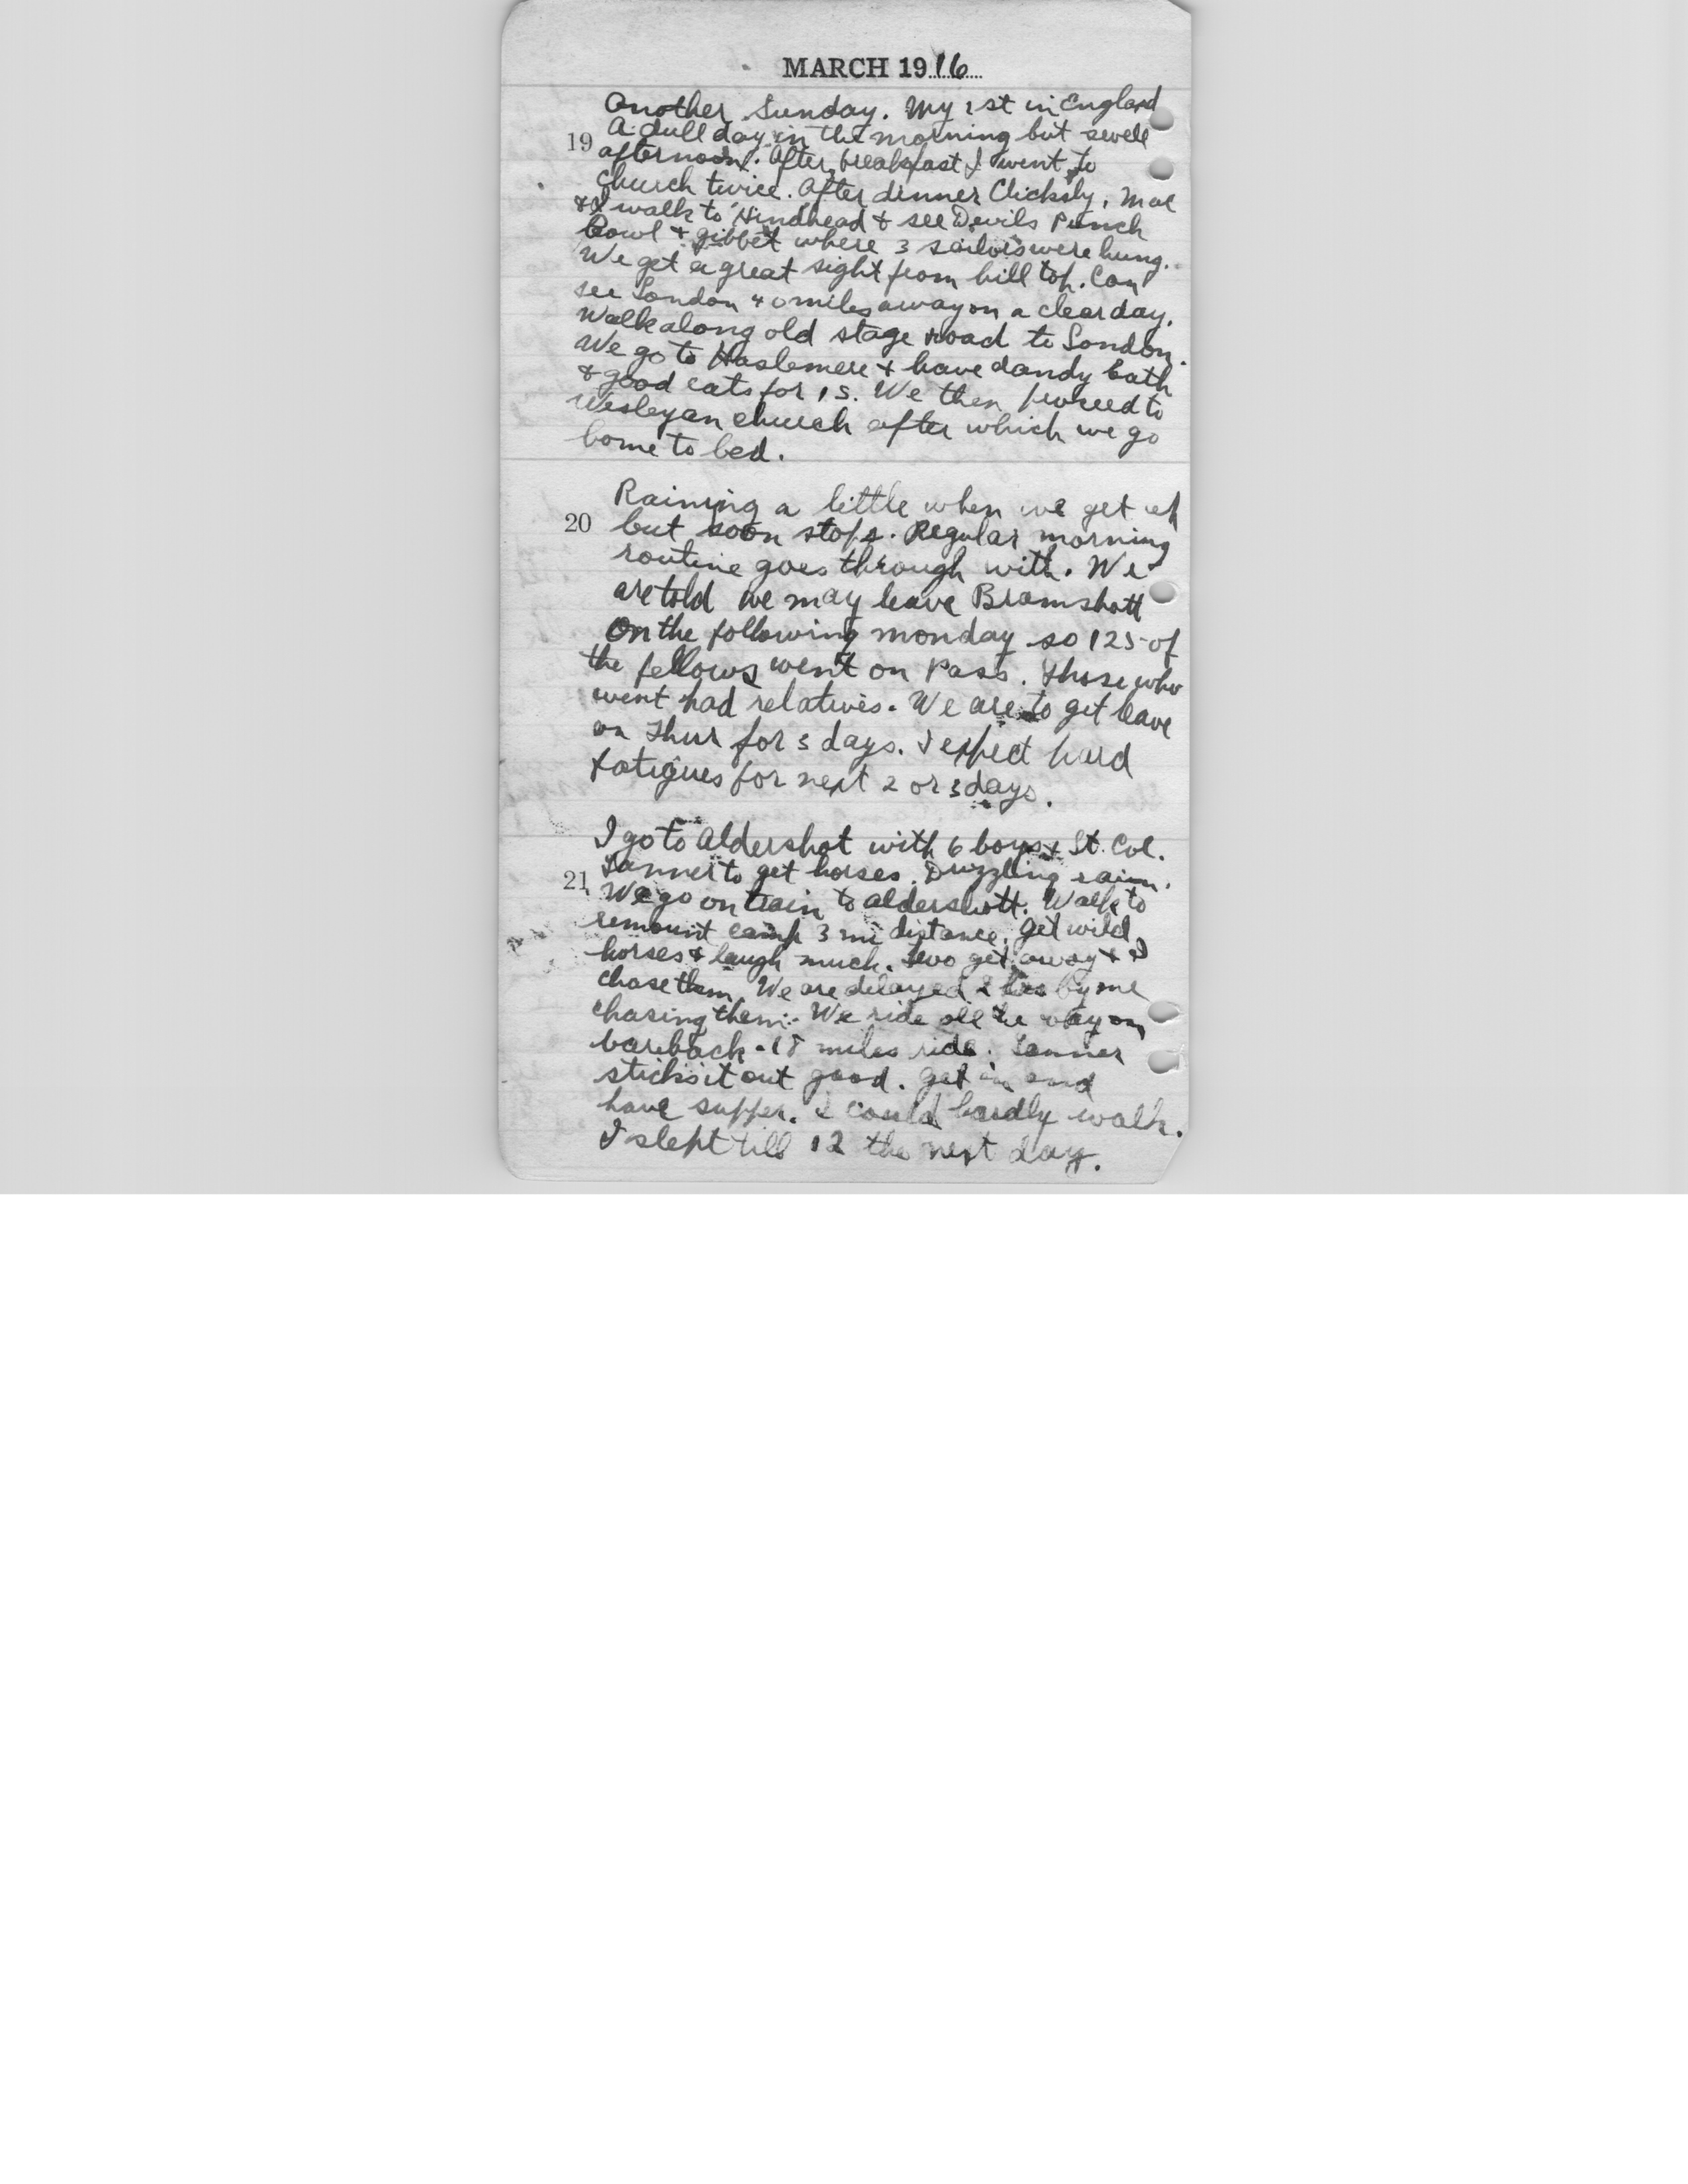 MARCH 1916
Another Sunday. My 1st in England
A dull day in the morning but swell
19 afternoon. After breakfast I went to
church twice. After dinner Clicksby, Mac
& I walk to Hindhead & see Devils Punch
Bowl & gibbet where 3 sailors were hung.
We get a great sight from hill top. Can
see London 40 miles away on a clear day.
Walk along old stage road to London.
We go to Haslemere & have dandy bath
& good eats for 1s. We then proceed to
Wesleyan church after which we go
home to bed.
Raining a little when we get up
20 but soon stops. Regular morning
routine goes through with. We
are told we may leave Bramshott
On the following monday so 125 of
the fellows went on pass. Those who
went had relatives. We are to get leave
on Thur for 5 days. I expect hard
fatigues for next 2 or 3 days.
I go to Aldershot with 6 boys & Lt. Col.
Tanner to get horses. Drizzling rain.
21 We go on train to aldershott. Walk to
remount camp 3 mi distance. get wild
horses & laugh much. two get away & I
chase them. We are delayed 2 hrs by me
chasing them. We ride all the way on
bareback. 18 miles ride. Tanner
sticks it out good. get in and
have supper. I could hardly walk.
I slept till 12 the next day.